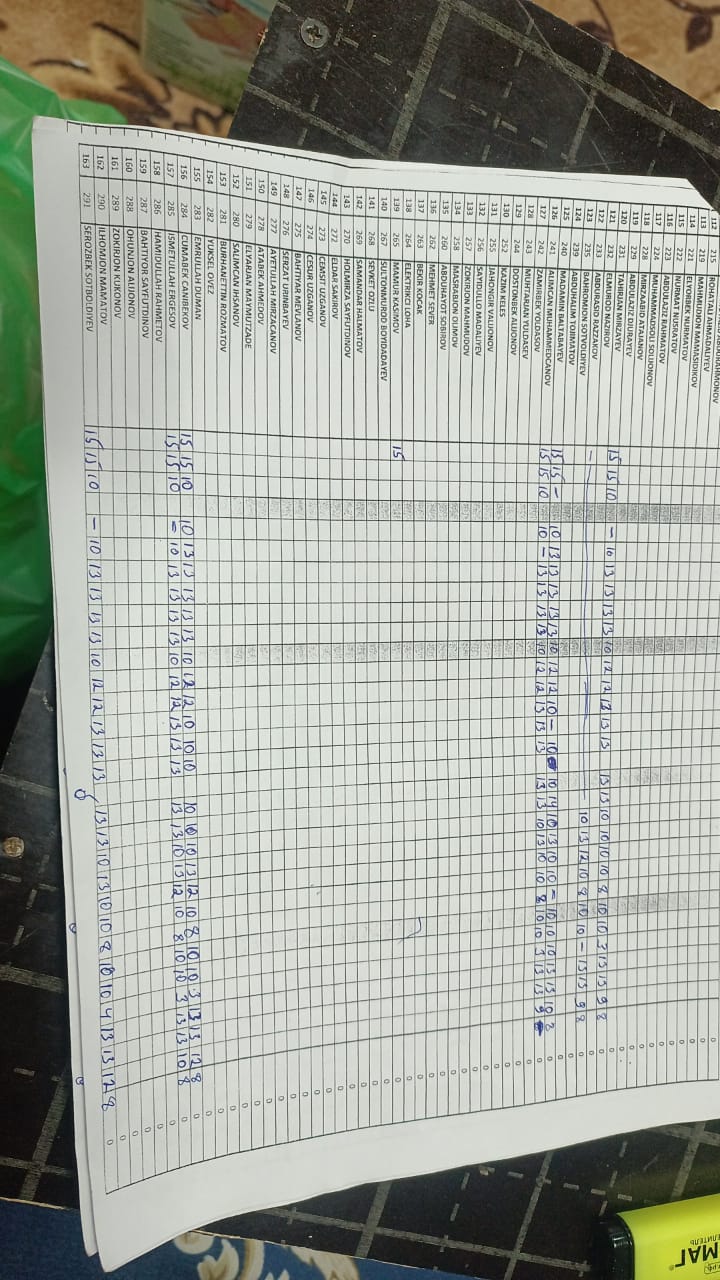 112 215 ROHATALI AHMADALIYEV 0
113 219 MAHMUDJON MAMASIDIKOV 0
114 221 ELYORBEK NURMATOV 0
115 222 NURMAT NUSRATOV 0
116 223 ABDULAZIZ RAHMATOV 0
117 224 MUHAMMADSOLI SOLIJONOV 0
118 228 MIRZAABID ATAJANOV 0
119 229 ABDULAZIZ DJURAYEV 0
120 231 TAHIRJAN MIRZAYEV 0
121 232 ELMUROD NAZIROV 15 15 10 — 10 13 13 13 13 10 12 12 13 13 13 13 13 10 10 10 10 8 10 10 3 13 13 9 8 0
122 233 ABDURASID RAZZAKOV 0
123 235 BAHROMJON SOTVOLDIYEV — 10 13 12 10 8 10 10 — 13 13 9 8 0
124 239 ABDUHALIM TOJIMATOV 0
125 240 MADAMIN BALTABAYEV 0
126 241 ALIMCAN MUHAMMEDCANOV 15 15 — 10 13 13 13 13 13 10 12 12 10 — 10 10 14 10 13 10 10 — 10 10 10 13 13 10 8 0
127 242 ZAMIRBEK YOLDASOV 15 15 10 10 — 13 13 13 13 10 12 12 13 13 13 13 13 10 13 10 10 8 10 10 3 13 13 9 0
128 243 MUHTARJAN YULDASEV 0
129 244 DOSTONBEK ALIJONOV 0
130 252 KAZIM KELES 0
131 255 JAHONGIR VALIJONOV 0
132 256 SAYIDULLO MADALIYEV 0
133 257 ZOKIRJON MAHMUDOV 0
134 258 MASRABJON OLIMOV 0
135 260 ABDUHAYOT SOBIROV 0
136 262 MEHMET SEVER 0
137 263 BEKIR KOCAK 0
138 264 ELEKTRIKCI LOHA 0
139 265 MAMUR KASIMOV 15 0
140 267 SULTONMUROD BOYIDADAYEV 0
141 268 SEVKET OZLU 0
142 269 SAMANDAR HALMATOV 0
143 270 HOLMIRZA SAYFUTDINOV 0
144 272 ELDAR SAKIROV 0
145 273 CEMSIT UZGANOV 0
146 274 CESUR UZGANOV 0
147 275 BAHTIYAR MEVLANOV 0
148 276 SERZAT URINBAYEV 0
149 277 AYETULLAH MIRZACANOV 0
150 278 ATABEK AHMEDOV 0
151 279 ELYARJAN MAYMUTZADE 0
152 280 SALIMCAN IHSANOV 0
153 281 BURHANETTIN ROZMATOV 0
154 282 YUKSEL OVEZ 0
155 283 EMRULLAH DUMAN 0
156 284 CUMABEK CANIBEKOV 15 15 10 10 13 13 13 13 13 10 12 12 10 10 10 10 10 10 13 12 10 8 10 10 3 13 13 12 8 0
157 285 ISMETULLAH ERGESOV 15 15 10 — 10 13 13 13 13 10 12 12 13 13 13 13 13 10 13 12 10 8 10 10 3 13 13 10 8 0
158 286 HAMIDULLAH RAHMETOV 0
159 287 BAHTIYOR SAYFUTDINOV 0
160 288 OHUNJON ALIJONOV 0
161 289 ZOKIRJON KUKONOV 0
162 290 ILHOMJON MAMATOV 0
163 291 SEROZBEK SOTBOLDIYEV 15 15 10 — 10 13 13 13 13 10 12 12 13 13 13 13 13 10 13 10 10 8 10 10 4 13 13 12 8 0
МАГ